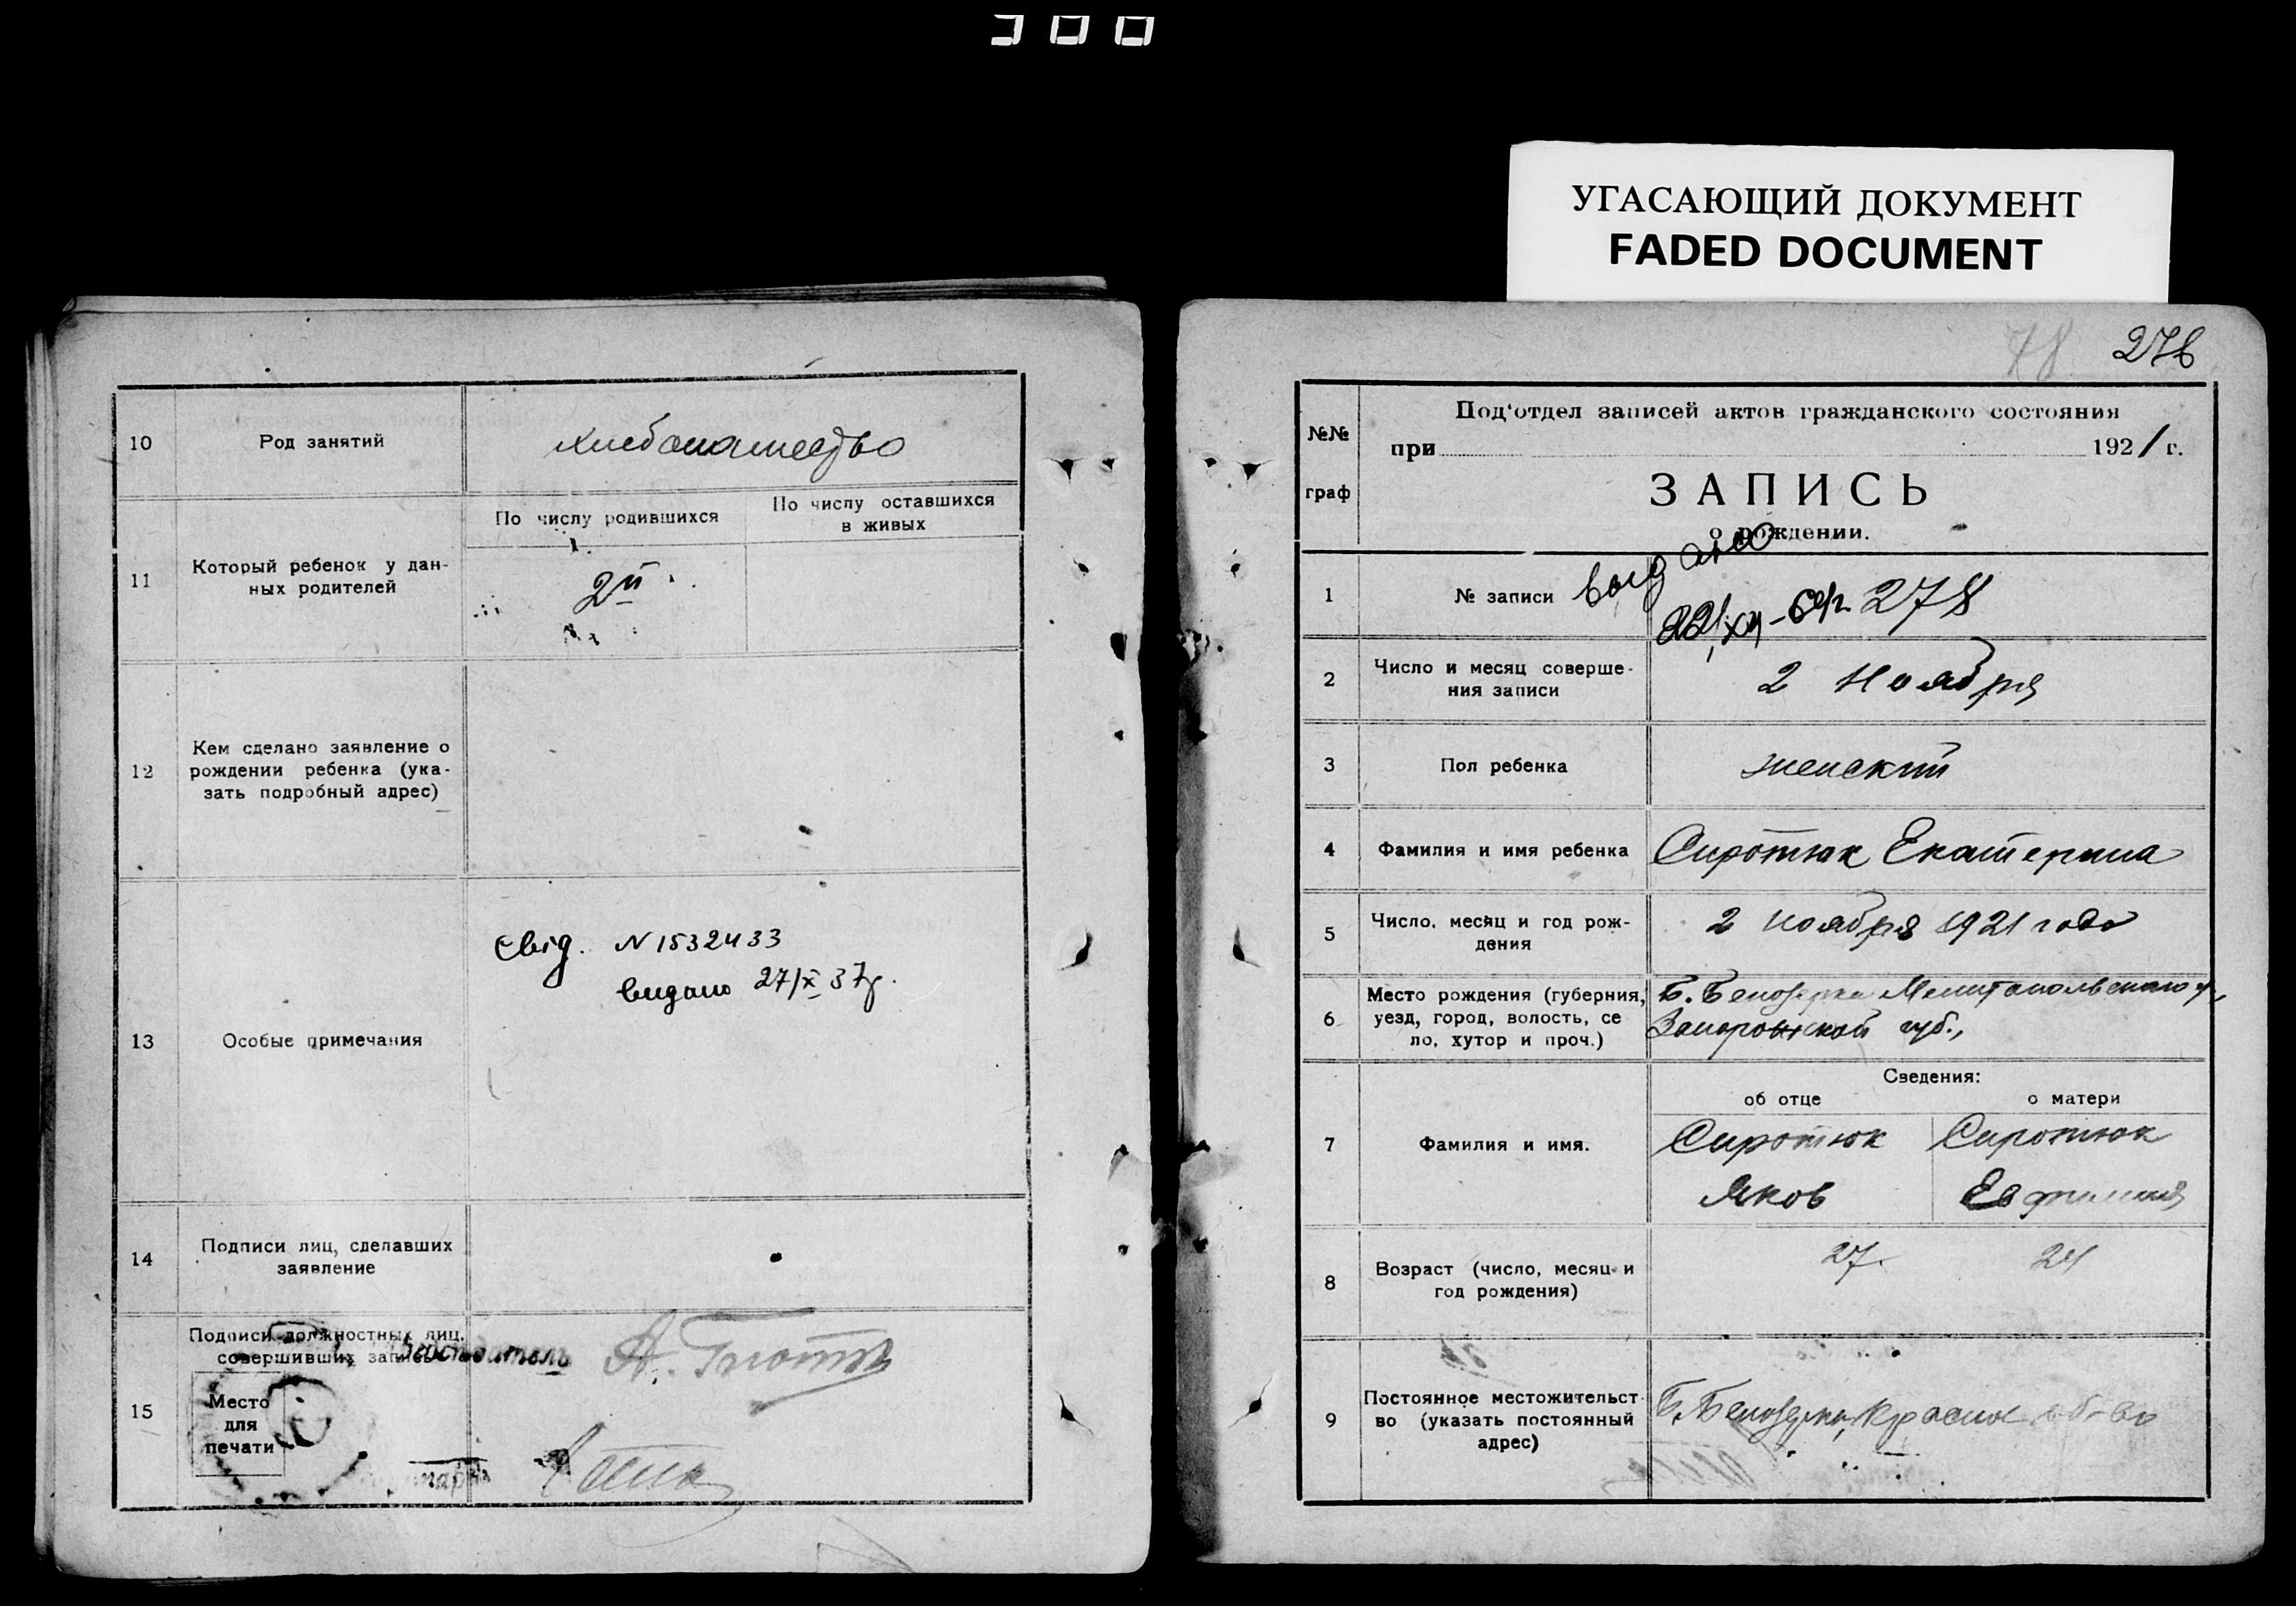 300
УГАСАЮЩИЙ ДОКУМЕНТ
FADED DOCUMENT
10
Род занятий
хлебопашество
11
Который ребенок у дан-
ных родителей
По числу родившихся
По числу оставшихся
в живых
2й
12
Кем сделано заявление о
рождении ребенка (ука-
зать подробный адрес)
13
Особые примечания
Свід. N 1532433
видано 27/X 37р.
14
Подписи лиц, сделавших
заявление
15
Подписи должностных лиц,
совершивших запись
Место
для
печати
276
№№
граф
Под'отдел записей актов гражданского состояния
при 1921 г.
ЗАПИСЬ
о рождении.
1
№ записи
выдано
278
2
Число и месяц соверше-
ния записи
2 Ноября
3
Пол ребенка
женский
4
Фамилия и имя ребенка
Сиротюк Екатерина
5
Число, месяц и год рож-
дения
2 ноября 1921 года
6
Место рождения (губерния,
уезд, город, волость, се
ло, хутор и проч.)
Б. Белозерка Мелитопольского у,
Запорожской губ.,
Сведения:
об отце
о матери
7
Фамилия и имя.
Сиротюк
Яков
Сиротюк
Евфимия
8
Возраст (число, месяц и
год рождения)
27.
24
9
Постоянное местожительст-
во (указать постоянный
адрес)
Б. Белозерка, Красное об-во